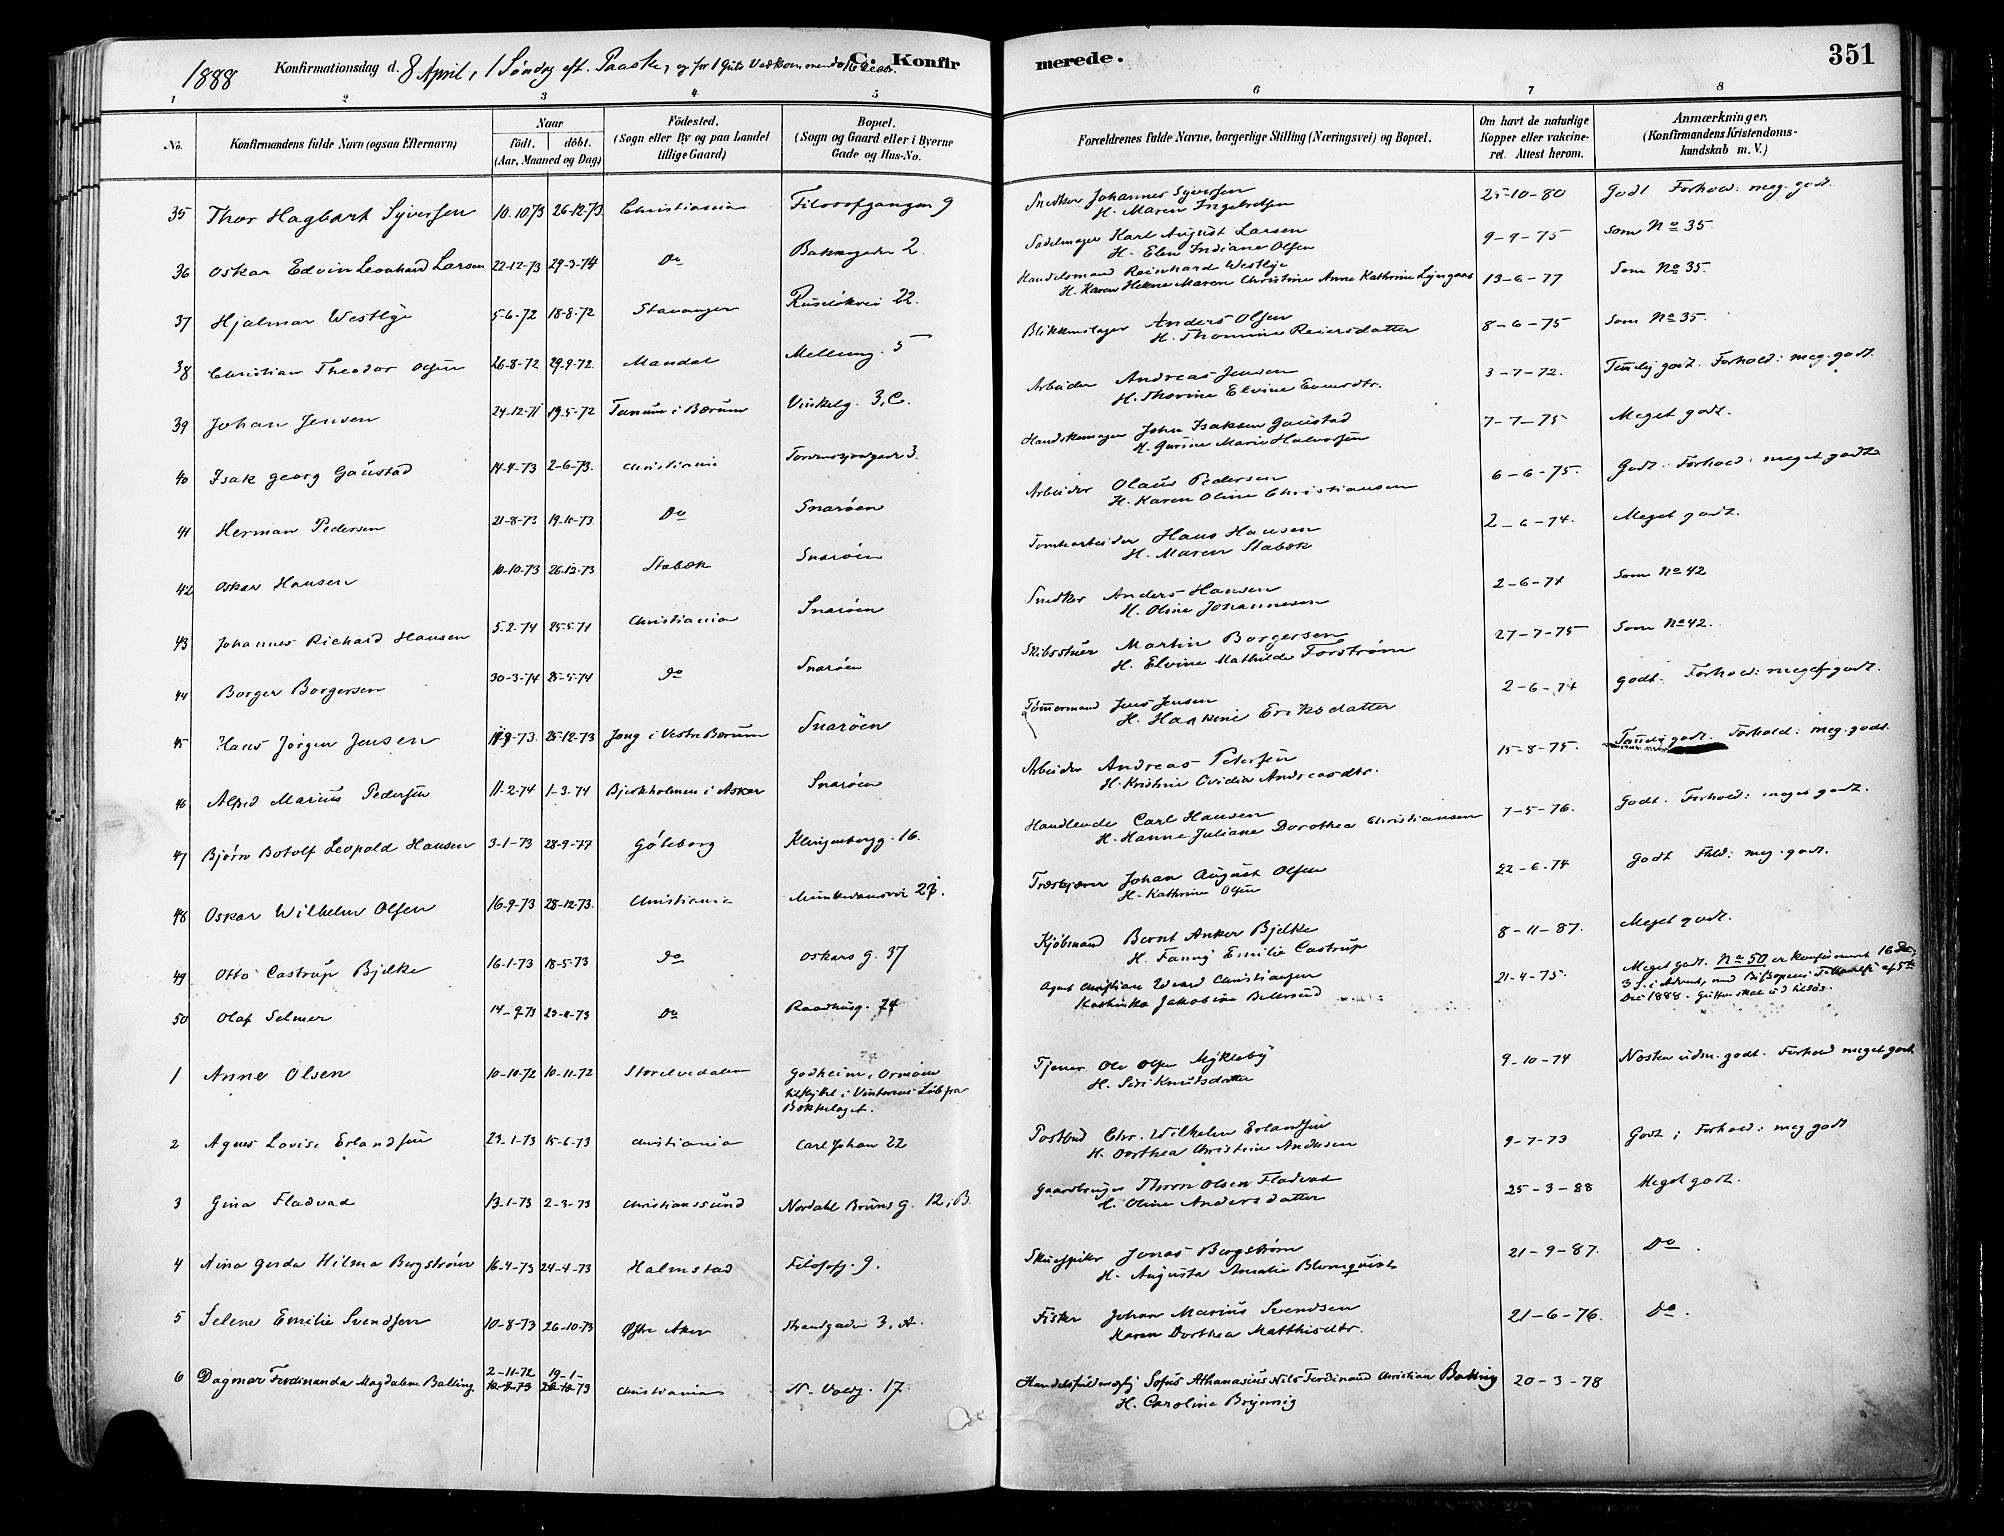 1888 Konfirmationsdag d. 8 April, 1 Søndag eft. Paaske, og for 1 Guts Vedkommende 16 Decbr. C. Konfirmerede. 351
1 2 3 4 5 6 7 8
No. Konfirmandens fulde Navn (ogsaa Efternavn) Naar födt. döbt. (Aar, Maaned og Dag) Födested. (Sogn eller By og paa Landet tillige Gaard) Bopæl. (Sogn og Gaard eller i Byerne Gade og Hus-No. Forældrenes fulde Navne, borgerlige Stilling (Næringsvei) og Bopæl. Om havt de naturlige Kopper eller vakcineret. Attest herom. Anmærkninger. (Konfirmandens Kristendomskundskab m. V.)
35 Thor Hagbart Syversen 10.10.73 26-12-73. Christiania Filosofgangen 9 Snedker Johannes Syversen 25-10-80 Godt Forhold: meg. godt.
H. Maren Ingebretsen
36 Oskar Edvin Leonhard Larsen 22-12-73 29-3-74 Do Bakkegaden 2. Sadelmager Karl August Larsen 9-9-75 Som No 35.
H. Elen Indiane Olsen
37 Hjalmar Westlye 5-6-72 18-8-72 Stavanger Ruseløkvei 22. Handelsmand Reinhard Westlye 13-6-77 Som No 35.
H. Karen Helene Maren Christine Anne Kathrine Lyngaas
38 Christian Theodor Olsen 26-8-72 29-9-72. Mandal Mellemg. 5 Blikkenslager Anders Olsen 8-6-75 Som No 35.
H. Thomine Reiersdatter
39 Johan Jensen 24-12-71 19-5-72 Tanum i Bærum Vinkelg. 3, C. Arbeider Andreas Jensen 3-7-72. Temelig godt. Forhold: meg. godt.
H. Thorine Elvine
40 Isak Georg Gaustad 14-4-73 2-6-73. Christiania Handskemager John Isaksen Gaustad 7-7-75 Meget godt.
H. Gurine Marie Halvorsen
41 Herman Pedersen 21-8-73 19-10-73. Do Snarøen Arbeider Olaus Pedersen 6-6-75. Godt. Forhold: meget godt.
H. Karen Oline Christiansen
42 Oskar Hansen 10-10-73 26-12-73 Stabæk Snarøen Tomtearbeider Hans Hansen 2-6-74. Meget godt.
H. Maren Stabæk
43 Johannes Richard Hansen 5-2-74 25-5-74 Christiania Snarøen Snedker Anders Hansen 2-6-74 Som No 42
H. Oline Johannesen
44 Borger Borgersen 30-3-74 25-5-74 Do Snarøen Skibsstuer Martin Borgersen 27-7-75 Som No 42.
H. Elvine Mathilde Forstrøm
45 Hans Jørgen Jensen 25-12-73 Jong i Vestre Bærum Snarøen Tømmermand Jens Jensen 2-6-74 Godt. Forhold: meget godt.
H. Eriksdatter
46 Alfred Marius Pedersen 11-2-74 1-3-74 Bjerkholmen i Asker Snarøen Arbeider Andreas Petersen 15-8-75. godt. Forhold: meg. godt.
H. Kristine Ovidia Andreasdtr.
47 Bjørn Botolf Leopold Hansen 3-1-73 28-9-77 Göteborg Klingenbergg. 16. Handlende Carl Hansen 7-5-76. Godt. Forhold: meget godt.
H. Hanne Juliane Dorothea Christiansen
48 Oskar Wilhelm Olsen 16-9-73 28-12-73. Christiania Munkedamsvei Johan August Olsen 22-6-74 Godt Fhld: meg. godt.
H. Kathrine Olsen
49 Otto Castrup Bjelke 16-1-73 18-5-73 Do Oskars g. 37 Kjøbmand Bernt Anker Bjelke 8-11-87. Meget godt.
H. Fanny Emilie Castrup
50 Olaf Selmer 14-9-73 Do Raadhusg. Agent Christian Edvard Christiansen 21-4-75. Meget godt. No 50 er konfirmert 16 Dec,
Kathinka Jakobine 3 S. i Advent, med Biskopens Tilladelse af 5te
Dec 1888.
1 Anne Olsen 10-10-72 10-11-72 Storelvedalen Godheim, Ormøen Tjener Ole Olsen Mykleby 9-10-74 Næsten udm. godt. Forhold meget godt.
i Vinterens Løb fra H. Siri Knutsdatter
Bækkelaget.
2 Agnes Lovise Erlandsen 23-1-73 15-6-73 Christiania Carl Johan 22 Postbud Chr. Wilhelm Erlandsen 9-7-73 Godt; Forhold: meg godt
H. Dorthea Christine Andersen
3 Gina Fladvad 13-1-73 2-3-73 Christianssund Nordahl Bruns g. 12, B. Gaardbruger Thron Olsen Fladvad 25-3-88 Meget godt.
H. Oline Andersdatter
4 Nina Gerda Hilma Bergstrøm 16-4-73 24-4-73 Halmstad Filosofg. 9. Skuespiller Jonas Bergstrøm 21-9-87. Do.
H. Augusta Amalie Blomquist
5 Selene Emilie Svendsen 10-8-73 26-10-73 Østre Aker Strandgaden 3, A. Fisker Johan Marius Svendsen 21-6-76. Do.
Karen Dorthea Matthisdtr.
6 Dagmar Ferdinanda Magdalena Balling 2-11-72 19-1- Christiania N. Voldg. 17. Sofus Athanasius Nils Ferdinand Christian Balling 20-3-78
10-8-73 26-10-73 H. Caroline